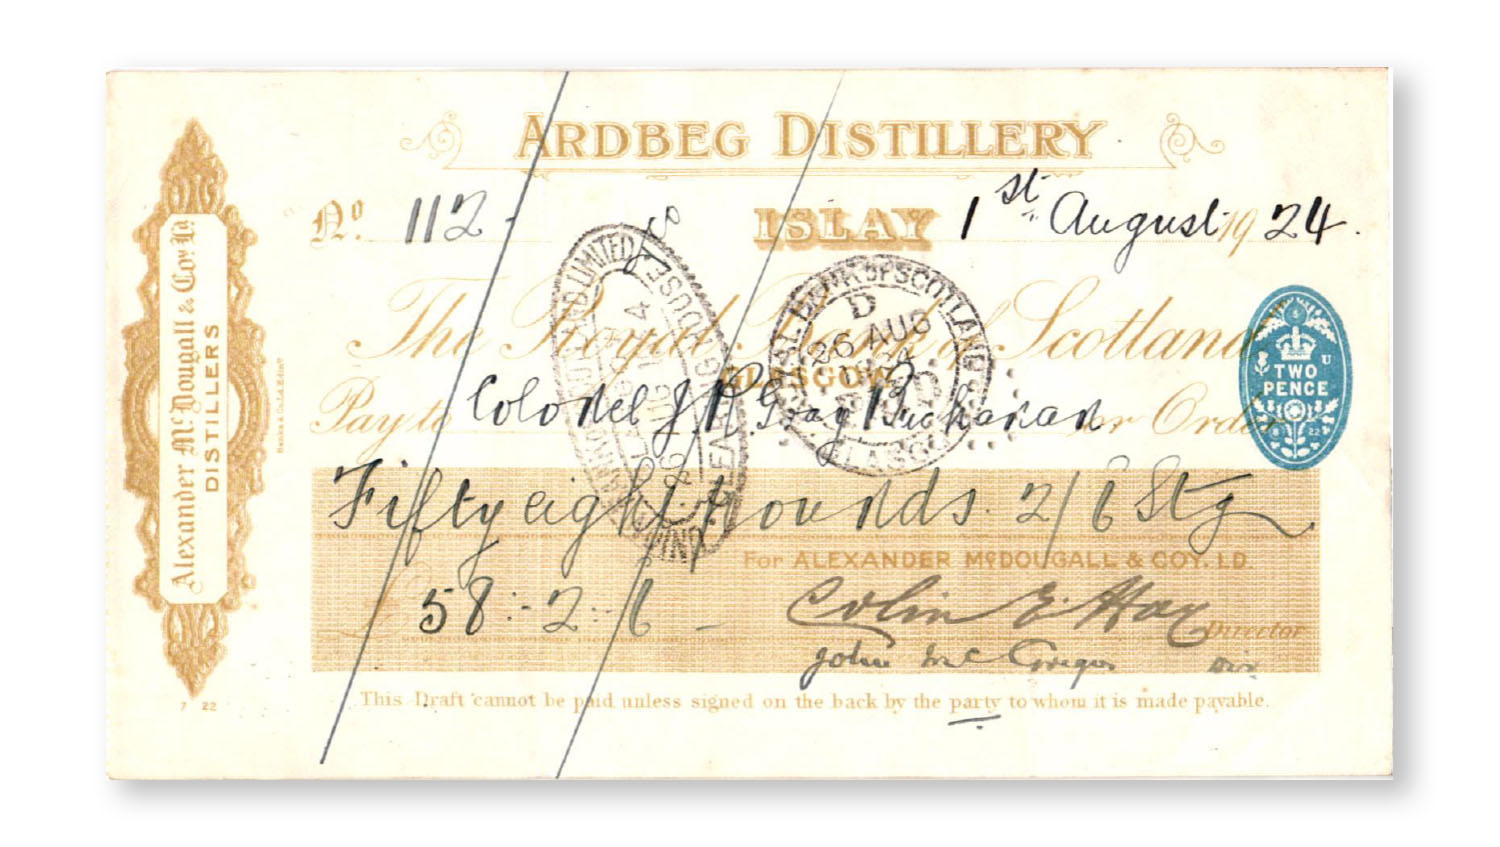 ARDBEG DISTILLERY
No. 112
ISLAY 1st August 1924.
The Royal Bank of Scotland
GLASGOW
Pay to Colonel J. R. Gray Buchanan or Order
Fifty eight pounds 2/6 Stg
For ALEXANDER McDOUGALL & COY. LD.
£ 58:-2:-6 -
Colin E. Hay
Director
John McGregor Dir
This Draft cannot be paid unless signed on the back by the party to whom it is made payable.
Alexander McDougall & Co. Ld.
DISTILLERS
7 22
TWO
PENCE
ROYAL BANK OF SCOTLAND
D
26 AUG
GLASGOW
LIMITED